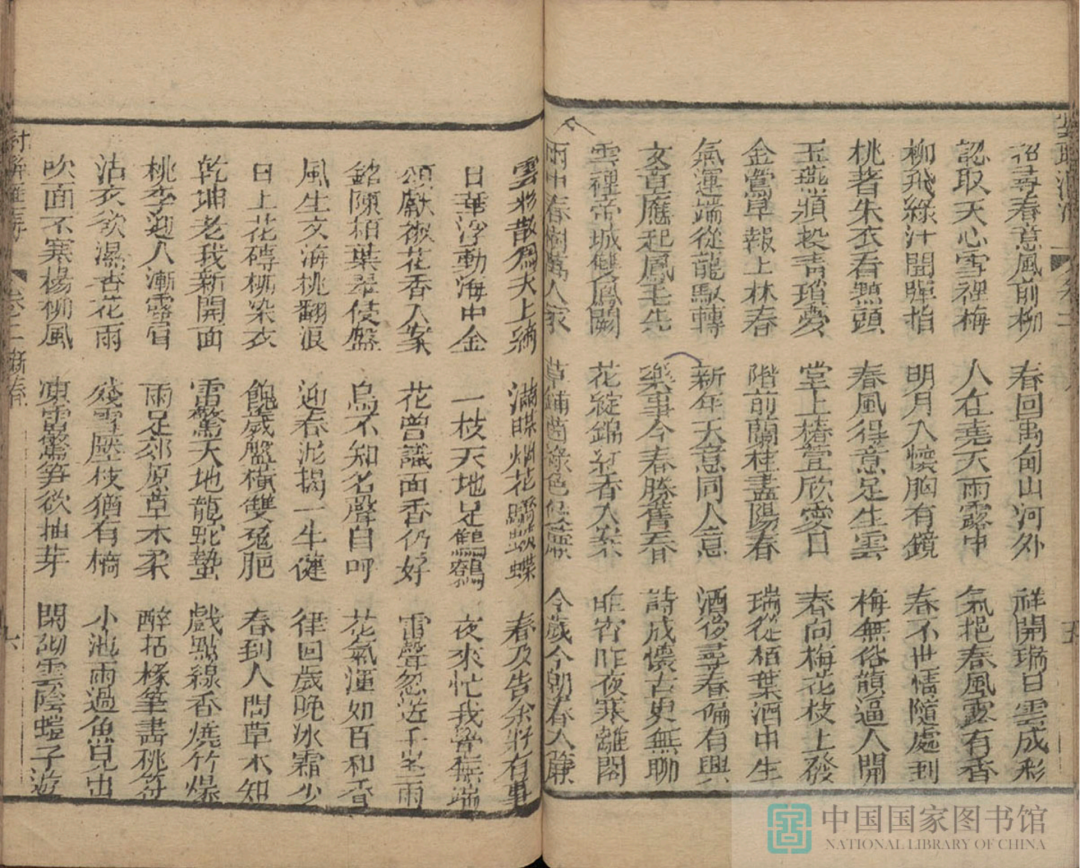 招尋春意風前柳 春回禹甸山河外 祥開瑞日雲成彩
認取天心雪裡梅 人在堯天雨露中 氣挹春風露有香
柳飛綠汁聞蟬指 明月入懷胸有鏡 春不世情隨處到
桃著朱衣看點頭 春風得意足生雲 梅無俗韻逼人開
玉燕蘋投青瑣夢 堂上椿萱欣愛日 春向梅花枝上發
金鶯早報上林春 階前蘭桂盡陽春 瑞從栢葉酒中生
氣運端從龍馭轉 新年天意同人意 酒後尋春偏有興
文章應起鳳毛先 樂事今春勝舊春 詩成懷古史無聊
雲裡帝城雙鳳闕 花綻錦紅香入案 昨宵昨夜寒離閣
雨中春樹萬人家 草鋪茵綠色侵簾 今歲今朝春入簾
雲物散為天上綺 滿畦烟花躋蛺蝶 春及告余將有事
日華浮動海中金 一枝天地足鷦鷯 夜來忙我會無端
頌獻椒花香入案 花曾識面香仍好 雷聲忽送千峯雨
銘陳栢葉翠侵盤 鳥不知名聲自呵 花氣渾如百和香
風生文海桃翻浪 迎春泥揭一牛健 律回歲晚冰霜少
日上花磚柳染衣 餽歲盤橫雙兔肥 春到人間草木知
乾坤老我新開面 雷驚天地龍蛇蟄 戲點線香燒竹爆
桃李迎人漸露眉 雨足郊原草木柔 醉拈椽筆書桃符
沾衣欲濕杏花雨 殘雪壓枝猶有橘 小池雨過魚兒出
吹面不寒楊柳風 凍雷驚笋欲抽芽 閑砌雲陰螘子遊
卷二 新春 六